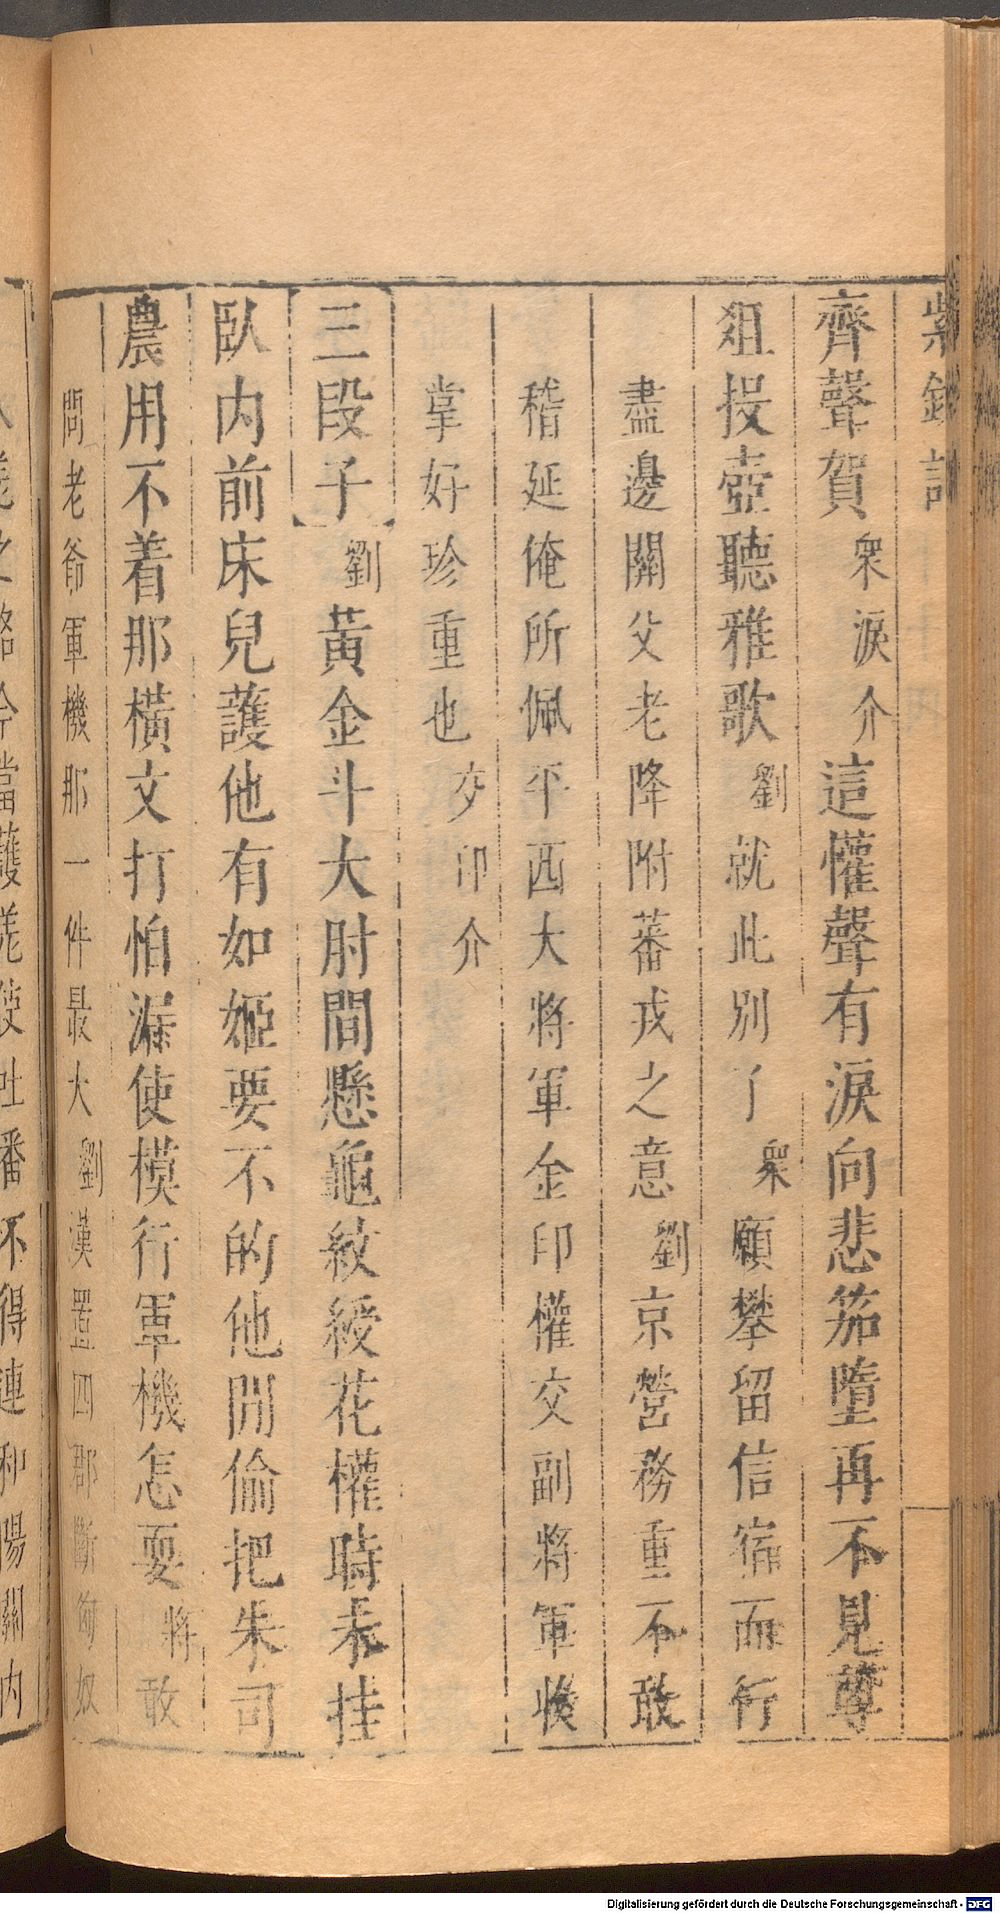 紫釵記
齊聲賀衆淚介這懽聲有淚向悲笳墮再不見尊
俎投壺聽雅歌劉就此別了衆願攀留信宿而行
盡邊關父老降附蕃戎之意劉京營務重不敢
稽延俺所佩平西大將軍金印權交副將軍收
掌好珍重也交印介
三段子劉黃金斗大肘間懸龜紋綬花權時未挂
臥内前床兒護他有如姬要不的他閒偷把朱司
農用不着那橫文打怕漏使模行軍機怎耍將敢
問老爺軍機那一件最大劉漢置四郡斷匈奴
之路今當護羌使吐番不得連和陽關内
Digitalisierung gefördert durch die Deutsche Forschungsgemeinschaft - DFG